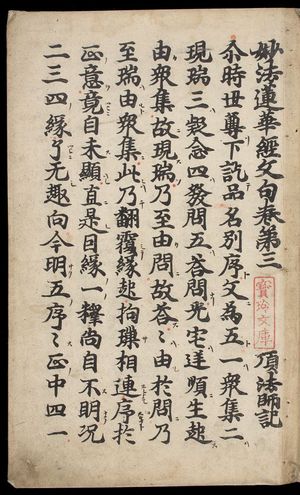 妙法蓮華經文句卷第三　頂法師記
寶玲文庫
尒時世尊下訖品名別序文為五一衆集二
現瑞三疑念四發問五荅問光宅逆順生起
由衆集故現瑞乃至由問故荅〻由於問乃
至瑞由衆集此乃翻覆緣起拘璅相連序於
正意竟自未顯直是因緣一釋尚自不明况
二三四緣乎无趣向今明五序〻正中四一